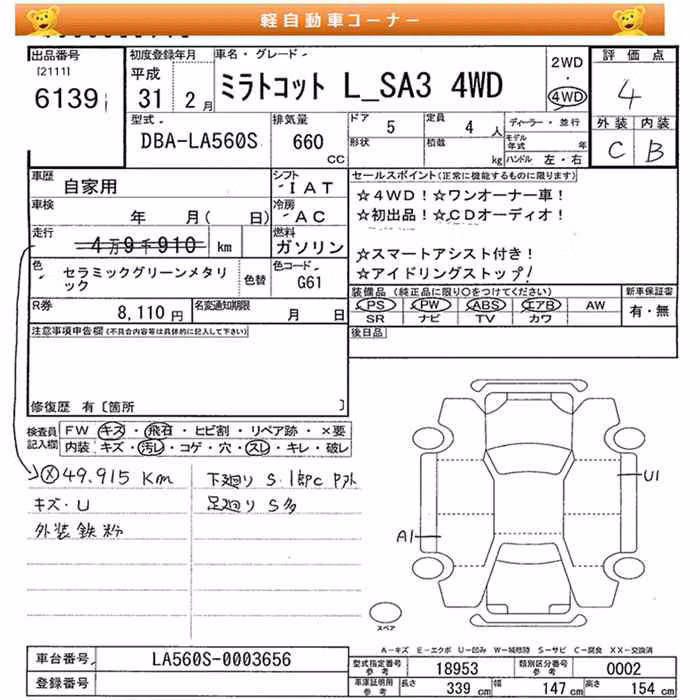 軽自動車コーナー
出品番号
[2111]
6139
初度登録年月
平成
31年 2月
車名・グレード
ミラトコット L_SA3 4WD
2WD
・
4WD
評価点
4
外装 内装
C B
型式
DBA-LA560S
排気量
660
CC
ドア
5
形状
定員
4 人
積載
kg
ディーラー・並行
モデル年式 年
ハンドル 左・右
車歴
自家用
シフト
IAT
車検
年 月( 日)
冷房
AC
走行
4万9千910 km
燃料
ガソリン
色
セラミックグリーンメタリック
色替
色コード
G61
R券
8,110 円
名変通知期限
月 日
セールスポイント(正常に機能するものに限ります)
☆4WD!☆ワンオーナー車!
☆初出品!☆CDオーディオ!
☆スマートアシスト付き!
☆アイドリングストップ!
装備品(純正品に限り○をつけてください)
新車保証書
PS PW ABS エアB AW
SR ナビ TV カワ
有・無
後日品
注意事項申告欄(不具合内容等は具体的に記入して下さい)
修復歴 有〔箇所 〕
検査員記入欄
FW キズ・飛石・ヒビ割・リペア跡・×要
内装 キズ・汚レ・コゲ・穴・スレ・キレ・破レ
Ⓧ49.915 Km
キズ・U
外装鉄粉
下廻り S.1部C P外
足廻り S多
U1
A1
スペア
A-キズ E-エクボ U-凹み W-補修跡 S-サビ C-腐食 XX-交換済
車台番号
LA560S-0003656
登録番号
型式指定番号
参考
18953
類別区分番号
参考
0002
車庫証明用
参考
長さ
339 cm
幅
147 cm
高さ
154 cm